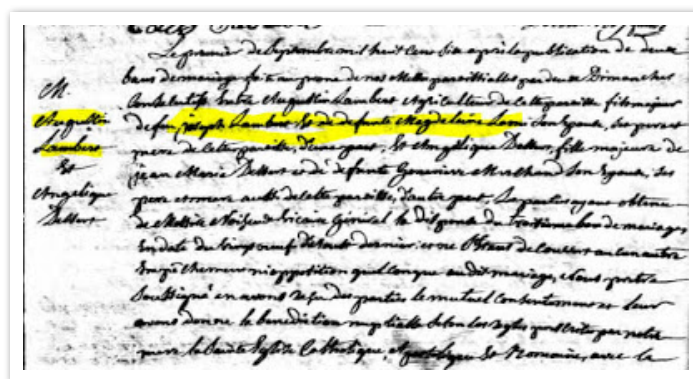 Le premier de Septembre mil huit cens six après la publication de deux
bans de mariage fait au prone de nos Messes paroissialles par deux Dimanches
Consecutifs Entre Augustin Lambert Agriculteur de cette paroisse fils majeur
de feu joseph Lambert Et de defunte Magdelaine Lami Son Epouse, Ses pere et
mere de cette paroisse, d'une part, Et Angélique Dellurt, fille majeure de
jean Marie Dellurt et de defunte Genevieve Marchand Son Epouse, Ses
pere et mere aussi de cette paroisse, d'autre part. Les parties ayant obtenu
de Vicaire Général la Dispense du troisième ban de mariage,
En date du vingt neuf d'Aout dernier et ne
Empechement ni opposition quelconque au dit mariage, Nous pretre
Soussigné en avons reçu des parties le mutuel Consentement et leur
avons donné la benediction nuptialle Selon les regles prescrites par notre
mere la Sainte Eglise Catholique, Apostolique Et Romaine, avec la
M.
Augustin
Lambert
Et
Angélique
Dellurt